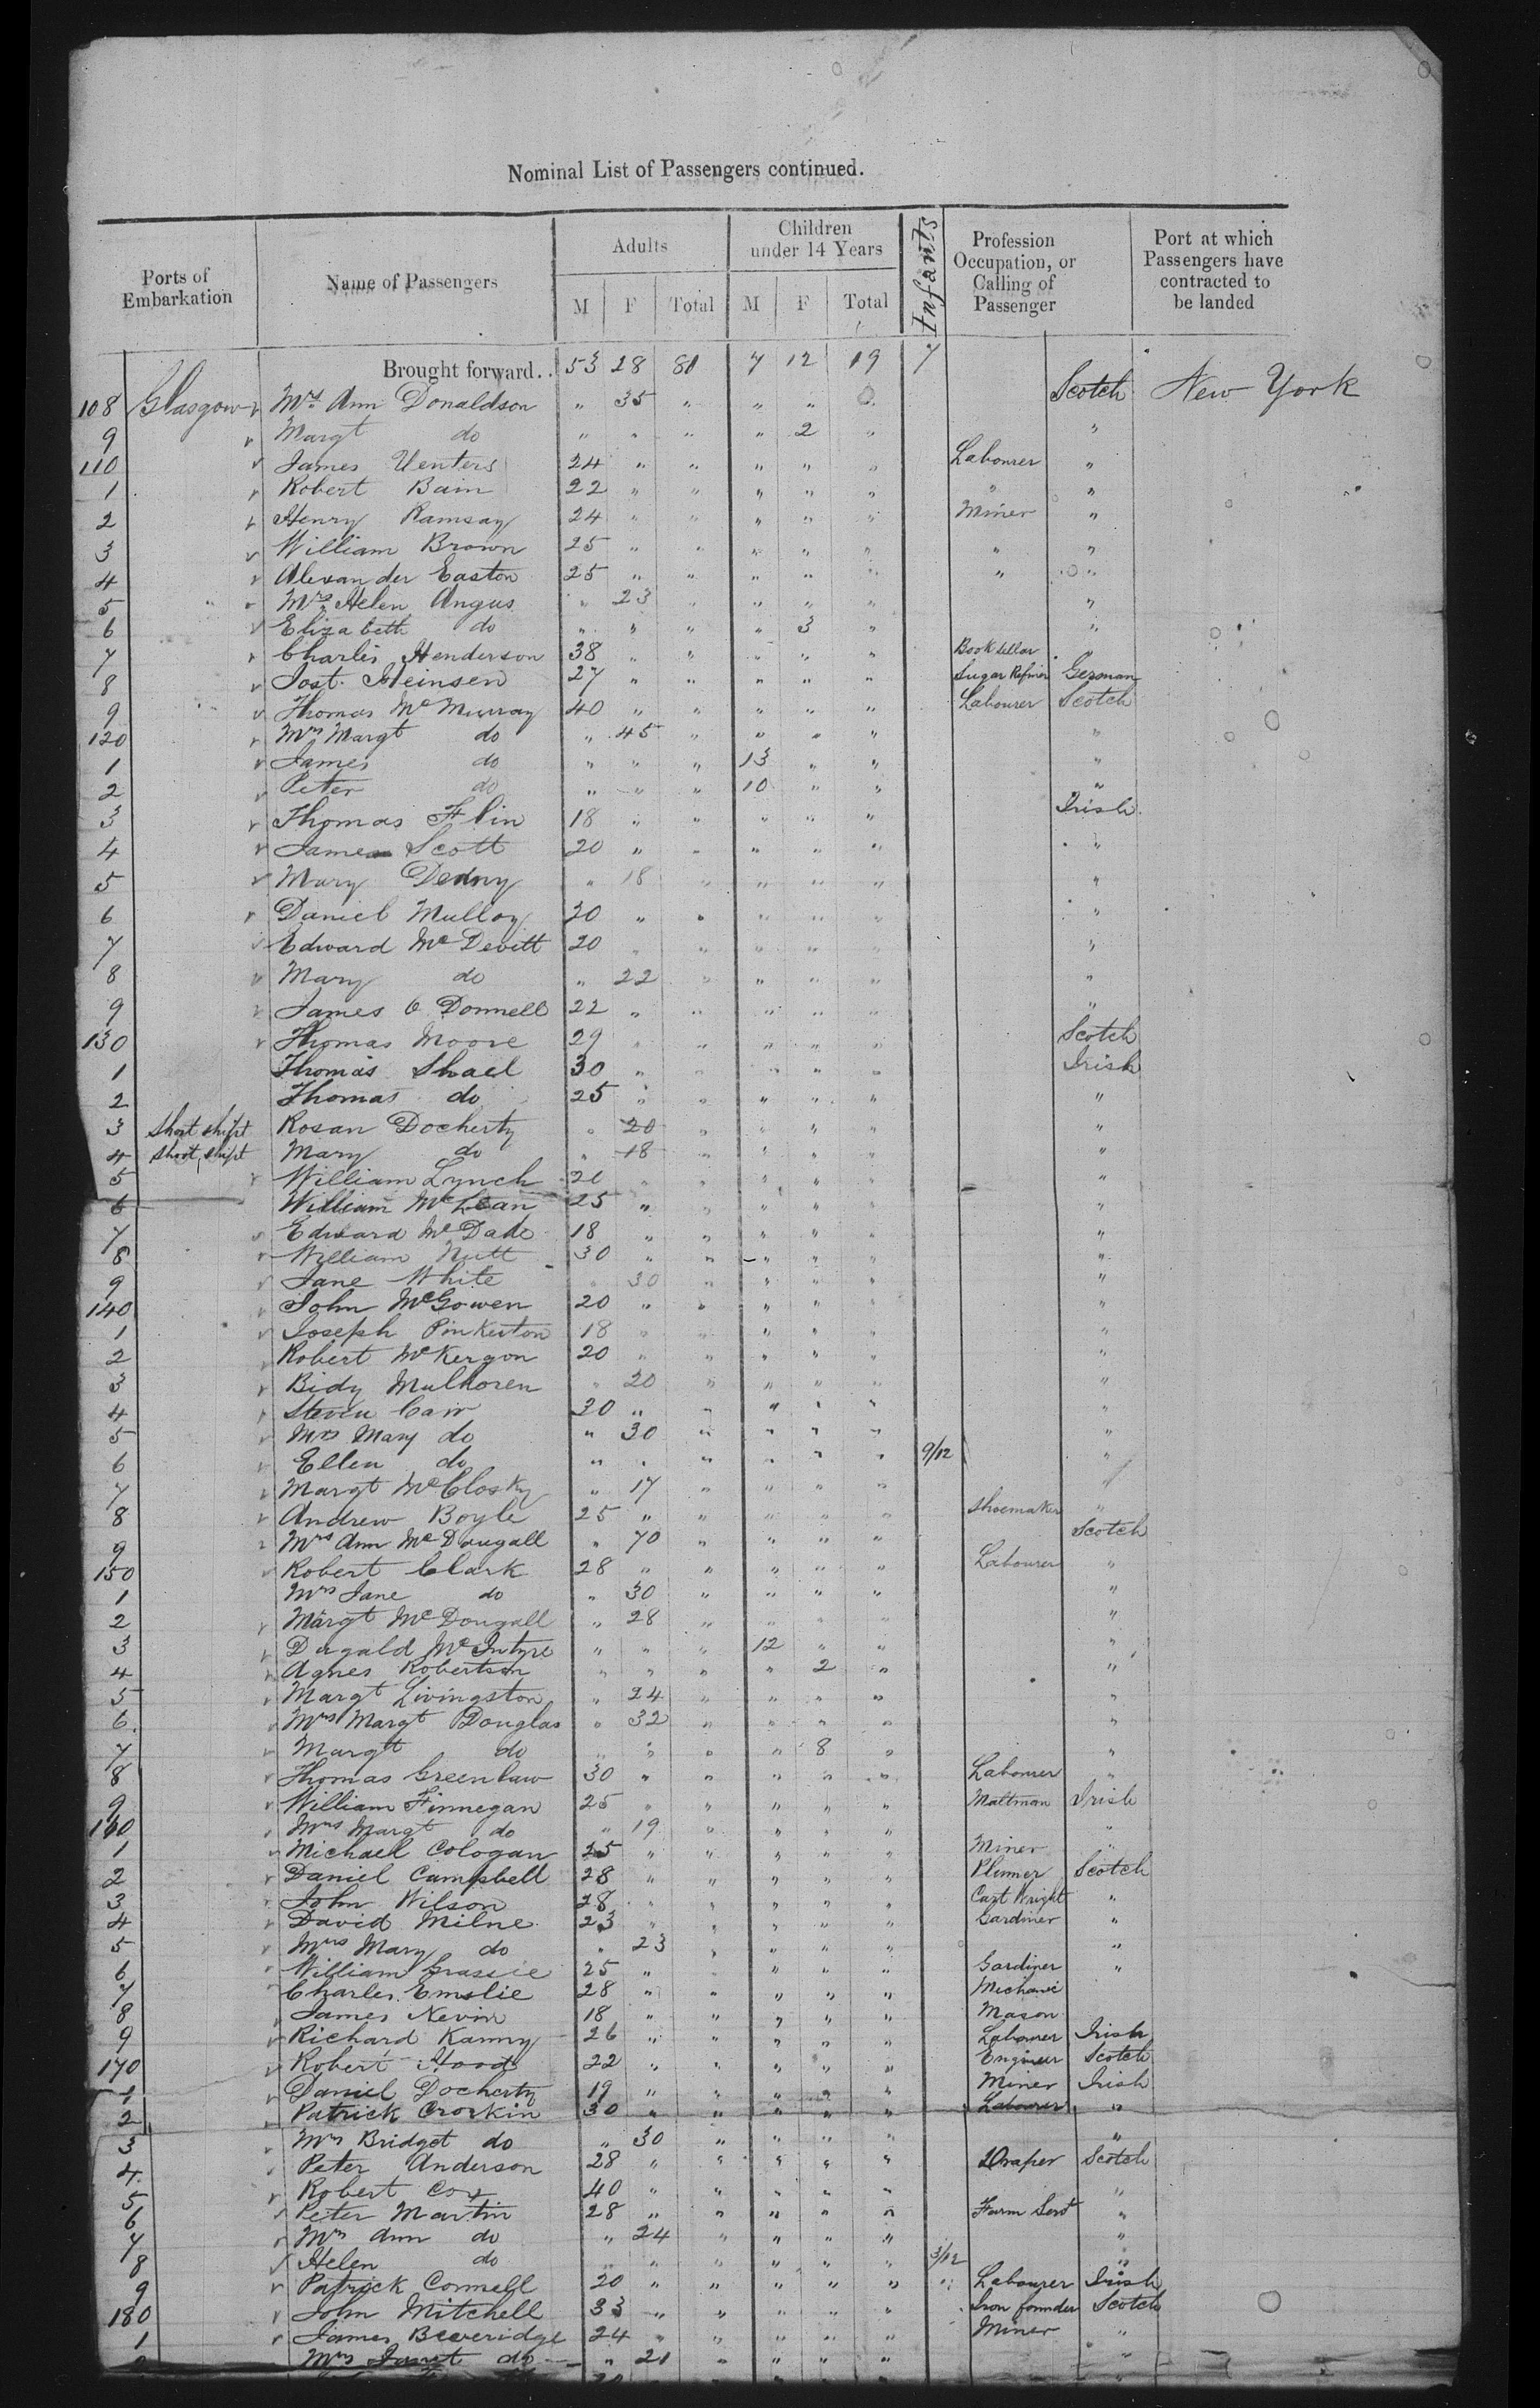 Nominal List of Passengers continued.
Ports of Embarkation | Name of Passengers | Adults M F Total | Children under 14 Years M F Total | Infants | Profession Occupation, or Calling of Passenger | Port at which Passengers have contracted to be landed
Brought forward.. 53 28 81 7 12 19 7
108 Glasgow Mrs. Ann Donaldson " 35 " " " " Scotch New York
9 Margt do " " " " 2 " "
110 James Venters 24 " " " " " Labourer "
1 Robert Bain 22 " " " " " " "
2 Henry Ramsay 24 " " " " " Miner "
3 William Brown 25 " " " " " " "
4 Alexander Easton 25 " " " " " " "
5 Mrs. Helen Angus " 23 " " " " "
6 Elizabeth do " " " " 3 " "
7 Charles Henderson 38 " " " " " Bookseller "
8 Jost. Meinsen 27 " " " " " Sugar Refiner German
9 Thomas McMurray 40 " " " " " Labourer Scotch
120 Mrs Margt do " 45 " " " " "
1 James do " " " 13 " " "
2 Peter do " " " 10 " " "
3 Thomas Flin 18 " " " " " Irish
4 James Scott 20 " " " " " "
5 Mary Denny " 18 " " " " "
6 Daniel Mulloy 30 " " " " " "
7 Edward McDevitt 20 " " " " " "
8 Mary do " 22 " " " " "
9 James O Donnell 22 " " " " " "
130 Thomas Moore 29 " " " " " Scotch
1 Thomas Shael 30 " " " " " Irish
2 Thomas do 25 " " " " " "
3 Short shipt Rosan Docherty " 20 " " " " "
4 Short shipt Mary do " 18 " " " " "
5 William Lynch 20 " " " " " "
6 William McLean 25 " " " " " "
7 Edward McDade 18 " " " " " "
8 William Nutt 30 " " " " " "
9 Jane White " 30 " " " " "
140 John McGowen 20 " " " " " "
1 Joseph Pinkerton 18 " " " " " "
2 Robert McKergon 20 " " " " " "
3 Bidy Mulhoren " 20 " " " " "
4 Steven Cair 30 " " " " " "
5 Mrs Mary do " 30 " " " " "
6 Ellen do " " " " " " 9/12 "
7 Margt McClosky " 17 " " " " "
8 Andrew Boyle 25 " " " " " Shoemaker "
9 Mrs Ann McDougall " 70 " " " " Scotch
150 Robert Clark 28 " " " " " Labourer "
1 Mrs Jane do " 30 " " " " "
2 Margt McDougall " 28 " " " " "
3 Dugald McIntyre " " " 12 " " "
4 Agnes Robertson " " " " 2 " "
5 Margt Livingston " 24 " " " " "
6. Mrs Margt Douglas " 32 " " " " "
7 Margt do " " " " 8 " "
8 Thomas Greenlaw 30 " " " " " Labourer "
9 William Finnegan 25 " " " " " Maltman Irish
160 Mrs Margt do " 19 " " " " "
1 Michael Cologan 25 " " " " " Miner "
2 Daniel Campbell 28 " " " " " Plumer Scotch
3 John Wilson 28 " " " " " Cart Wright "
4 David Milne 23 " " " " " Gardiner "
5 Mrs Mary do " 23 " " " " "
6 William Grassie 25 " " " " " Gardiner "
7 Charles Emslie 28 " " " " " Mechanic
8 James Nevin 18 " " " " " Mason
9 Richard Kanny 26 " " " " " Labourer Irish
170 Robert Hood 22 " " " " " Engineer Scotch
1 Daniel Docherty 19 " " " " " Miner Irish
2 Patrick Croskin 30 " " " " " Labourer "
3 Mrs Bridget do " 30 " " " " "
4. Peter Anderson 28 " " " " " Draper Scotch
5 Robert Cox 40 " " " " " "
6 Peter Martin 28 " " " " " Farm Sert "
7 Mrs Ann do " 24 " " " " "
8 Helen do " " " " " " 3/12 "
9 Patrick Connell 20 " " " " " " Labourer Irish
180 John Mitchell 33 " " " " " Iron founder Scotch
1 James Beveridge 24 " " " " " Miner "
Mrs Janet do " 21 " " " " "